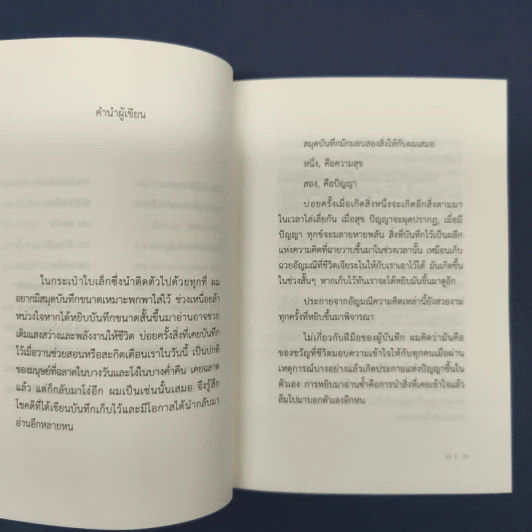 คำนำผู้เขียน
ในกระเป๋าใบเล็กซึ่งนำติดตัวไปด้วยทุกที่ ผม
อยากมีสมุดบันทึกขนาดเหมาะพกพาใส่ไว้ ช่วงเหนื่อยล้า
หน่วงใจหากได้หยิบบันทึกขนาดสั้นขึ้นมาอ่านอาจช่วย
เติมแสงสว่างและพลังงานให้ชีวิต บ่อยครั้งสิ่งที่เคยบันทึก
ไว้เมื่อวานช่วยสอนหรือสะกิดเตือนเราในวันนี้ เป็นปกติ
ของมนุษย์ที่ฉลาดในบางวันและโง่ในบางค่ำคืน เคยฉลาด
แล้ว แต่ก็กลับมาโง่อีก ผมเป็นเช่นนั้นเสมอ จึงรู้สึก
โชคดีที่ได้เขียนบันทึกเก็บไว้และมีโอกาสได้นำกลับมา
อ่านอีกหลายหน
สมุดบันทึกมักมอบสองสิ่งให้กับผมเสมอ
หนึ่ง, คือความสุข
สอง, คือปัญญา
บ่อยครั้งเมื่อเกิดสิ่งหนึ่งจะเกิดอีกสิ่งตามมา
ในเวลาไล่เลี่ยกัน เมื่อสุข ปัญญาจะผุดปรากฏ, เมื่อมี
ปัญญา ทุกข์จะมลายหายพลัน สิ่งที่บันทึกไว้เป็นผลึก
แห่งความคิดที่ฉายวาบขึ้นมาในช่วงเวลานั้น เหมือนเก็บ
ฉวยอัญมณีที่ชีวิตเจียระไนให้กับเราเอาไว้ได้ มันเกิดขึ้น
ในช่วงสั้นๆ หากเก็บไว้ทันเราจะได้หยิบมันขึ้นมาดูอีก
ประกายจากอัญมณีความคิดเหล่านี้ยังสวยงาม
ทุกครั้งที่หยิบขึ้นมาพิจารณา
ไม่เกี่ยวกับฝีมือของผู้บันทึก ผมคิดว่ามันคือ
ของขวัญที่ชีวิตมอบความเข้าใจให้กับทุกคนเมื่อผ่าน
เหตุการณ์บางอย่างแล้วเกิดประกายแห่งปัญญาขึ้นใน
ตัวเอง การหยิบมาอ่านซ้ำคือการนำสิ่งที่เคยเข้าใจแล้ว
ลืมไปมาบอกตัวเองอีกหน